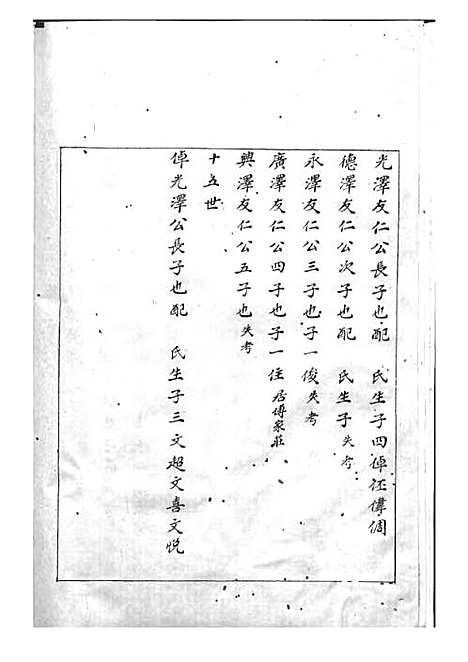 光澤友仁公長子也配　氏生子四倬任偉倜
德澤友仁公次子也配　氏生子失考
永澤友仁公三子也子一俊失考
廣澤友仁公四子也子一住居傅家莊
興澤友仁公五子也失考
十五世
倬光澤公長子也配　氏生子三文超文喜文悅